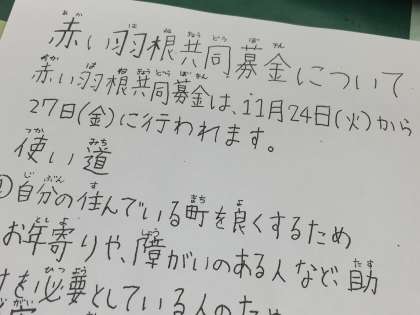 赤い羽根共同募金について
赤い羽根共同募金は、11月24日(火)から
27日(金)に行われます。
使い道
①自分の住んでいる町を良くするため
お年寄りや、障がいのある人など、助
けを必要としている人のため